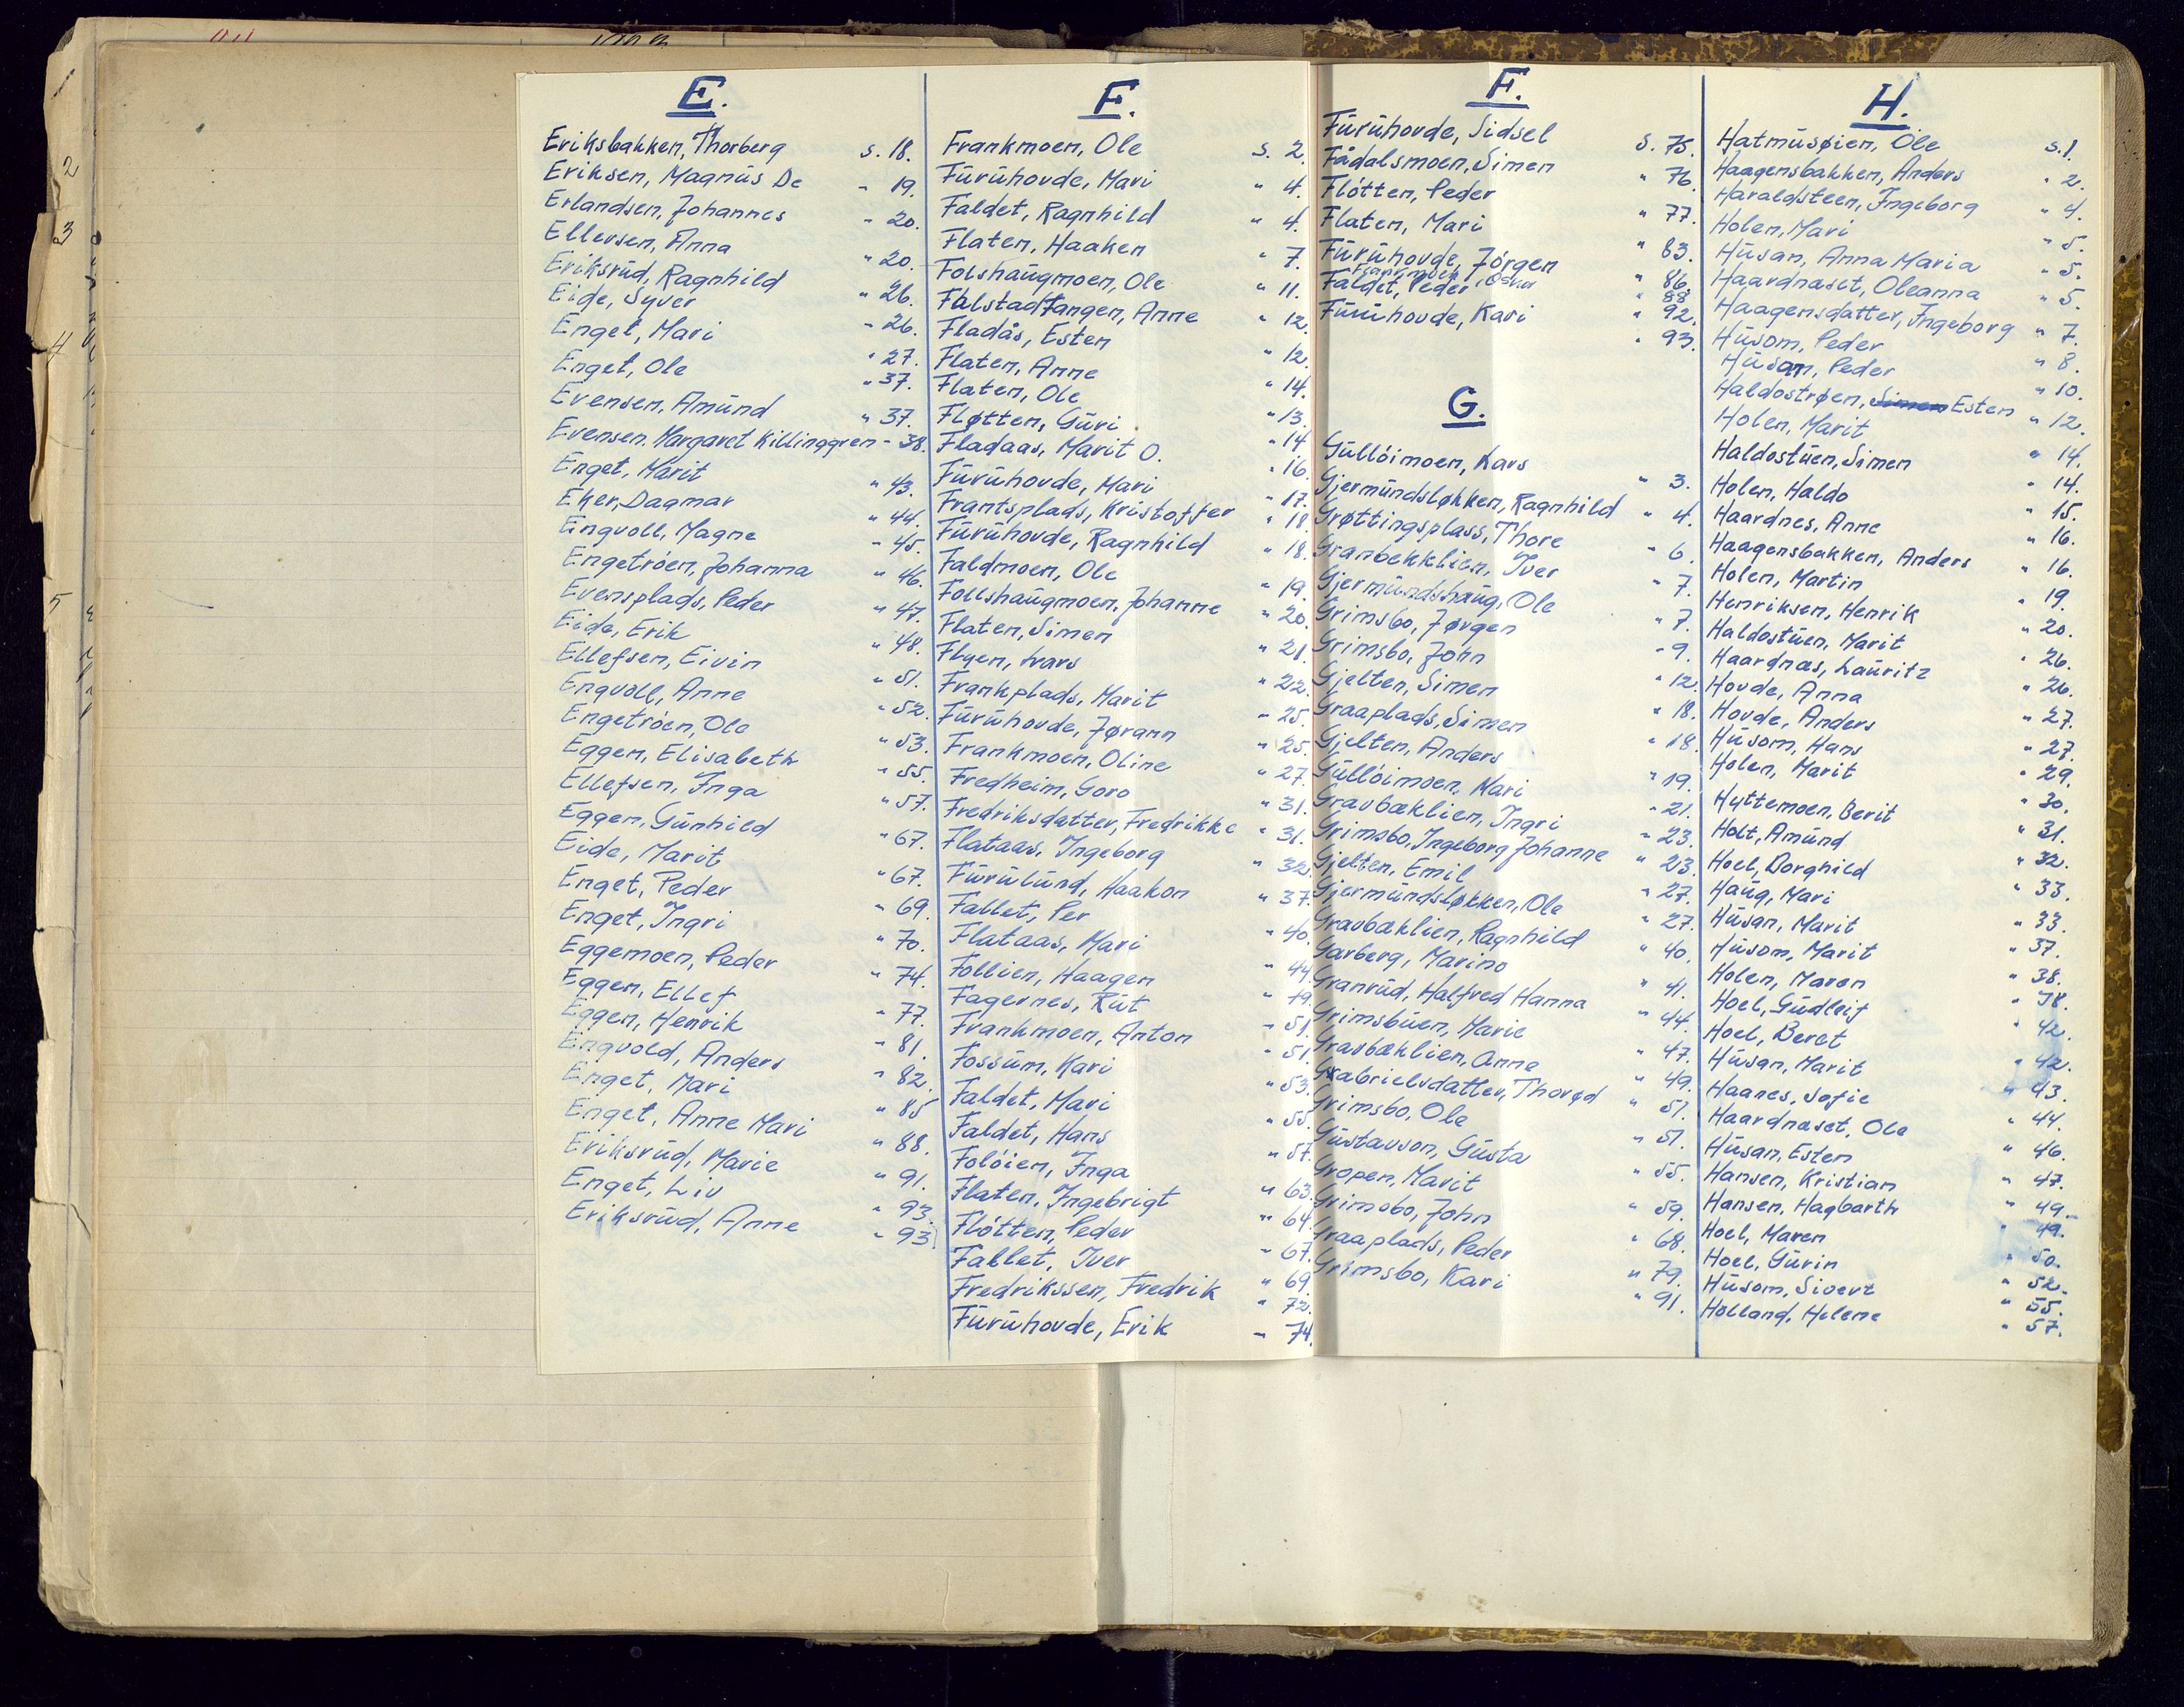 E.
Eriksbakken, Thorberg s. 18.
Eriksen, Magnus De " 19.
Erlandsen, Johannes " 20.
Ellevsen, Anna " 20.
Eriksrud, Ragnhild " 26.
Eide, Syver " 26.
Enget, Mari " 27.
Enget, Ole " 37.
Evensen, Amünd " 37.
Evensen, Margaret Killinggren " 38.
Enget, Marit " 43.
Eker, Dagmar " 44.
Engvoll, Magne " 45.
Engetröen, Johanna " 46.
Evensplads, Peder " 47.
Eide, Erik " 48.
Ellefsen, Eivin " 51.
Engvoll, Anne " 52.
Engetröen, Ole " 53.
Eggen, Elisabeth " 55.
Ellefsen, Inga " 57.
Eggen, Günhild " 67.
Eide, Marit " 67.
Enget, Peder " 69.
Enget, Ingri " 70.
Eggemoen, Peder " 74.
Eggen, Ellef " 77.
Eggen, Henrik " 81.
Engvold, Anders " 82.
Enget, Mari " 85
Enget, Anne Mari " 88.
Eriksrüd, Marie " 91.
Enget, Liv " 93.
Eriksrüd, Anne " 93.
F.
Frankmoen, Ole s. 2.
Fürühovde, Mari " 4.
Faldet, Ragnhild " 4.
Flaten, Haaken " 7.
Folshaügmoen, Ole " 11.
Falstadtangen, Anne " 12.
Fladås, Esten " 12.
Flaten, Anne " 14.
Flaten, Ole " 13.
Fløtten, Güri " 14
Fladaas, Marit O. " 16.
Fürühovde, Mari " 17.
Frantsplads, Kristoffer " 18
Fürühovde, Ragnhild " 18.
Faldmoen, Ole " 19.
Follshaügmoen, Johanne " 20.
Flaten, Simen " 21.
Flyen, Lars " 22.
Frankplads, Marit " 25.
Fürühovde, Jørann " 25.
Frankmoen, Oline " 27.
Fredheim, Goro " 31.
Fredriksdatter, Fredrikke " 31.
Flataas, Ingeborg " 32.
Fürülünd, Haakon " 37.
Fallet, Per " 40.
Flataas, Mari " 44.
Follien, Haagen " 49.
Fagernes, Rüt " 51.
Frankmoen, Anton " 51
Fossüm, Kari " 53.
Faldet, Mari " 55.
Faldet, Hans " 57.
Folöien, Inga " 63.
Flaten, Ingebrigt " 64.
Flötten, Peder " 67.
Fallet, Iver " 69.
Fredrikssen, Fredrik " 72.
Fürühovde, Erik " 74.
F.
Fürühovde, Sidsel s. 75.
Fådalsmoen, Simen " 76.
Flötten, Peder " 77.
Flaten, Mari " 83.
Fürühovde, Jörgen " 86.
" 88
Faldet, Peder " 92.
Fürühovde, Kari " 93.
G.
Güllöimoen, Lars " 3.
Gjermündsløkken, Ragnhild " 4.
Grøttingsplass, Thore " 6.
Granbekklien, Iver " 7.
Gjermündshaüg, Ole " 7.
Grimsbo, Jørgen " 9.
Grimsbo, John " 12.
Gjelten, Simen " 18.
Graaplads, Simen " 18.
Gjelten, Anders " 19.
Güllöimoen, Mari " 21.
Gravbæklien, Ingri " 23.
Grimsbo, Ingeborg Johanne " 23.
Gjelten, Emil " 27.
Gjermündsløkken, Ole " 27.
Gravbæklien, Ragnhild " 40.
Garberg, Marino " 41.
Granrüd, Halfred Hanna " 44.
Grimsbüen, Marie " 47.
Gravbæklien, Anne " 49.
Gabrielsdatter, Thorød " 51.
Grimsbo, Ole " 51.
Güstavson, Güsta " 55.
Gropen, Marit " 59.
Grimsbo, John " 68.
Graaplads, Peder " 79.
Grimsbo, Kari " 91.
H.
Hatmüsøien, Ole s. 1.
Haagensbakken, Anders " 2.
Haraldsteen, Ingeborg " 4.
Holen, Mari " 5.
Hüsan, Anna Maria " 5.
Haardnæset, Oleanna " 5.
Haagensdatter, Ingeborg " 7.
Hüsom, Peder " 8.
Hüsan, Peder " 10.
Haldostrøen, Simen Esten " 12.
Holen, Marit " 14.
Haldostüen, Simen " 14.
Holen, Haldo " 15.
Haardnes, Anne " 16.
Haagensbakken, Anders " 16.
Holen, Martin " 19.
Henriksen, Henrik " 20.
Haldostüen, Marit " 26.
Haardnæs, Laüritz " 26.
Hovde, Anna " 27.
Hovde, Anders " 27.
Hüsom, Hans " 29.
Holen, Marit " 30.
Hyttemoen, Berit " 31.
Holt, Amünd " 32.
Hoel, Borghild " 33.
Haüg, Mari " 33.
Hüsan, Marit " 37.
Hüsom, Marit " 38.
Holen, Maren " 38.
Hoel, Güdleif " 42.
Hoel, Beret " 42.
Hüsan, Marit " 43.
Haanes, Sofie " 44.
Haardnæset, Ole " 46.
Hüsan, Esten " 47.
Hansen, Kristian " 49.
Hansen, Hagbarth " 49.
Hoel, Maren " 50.
Hoel, Gürin " 52.
Hüsom, Sivert " 55.
Holland, Helene " 57.
2
3
4
5